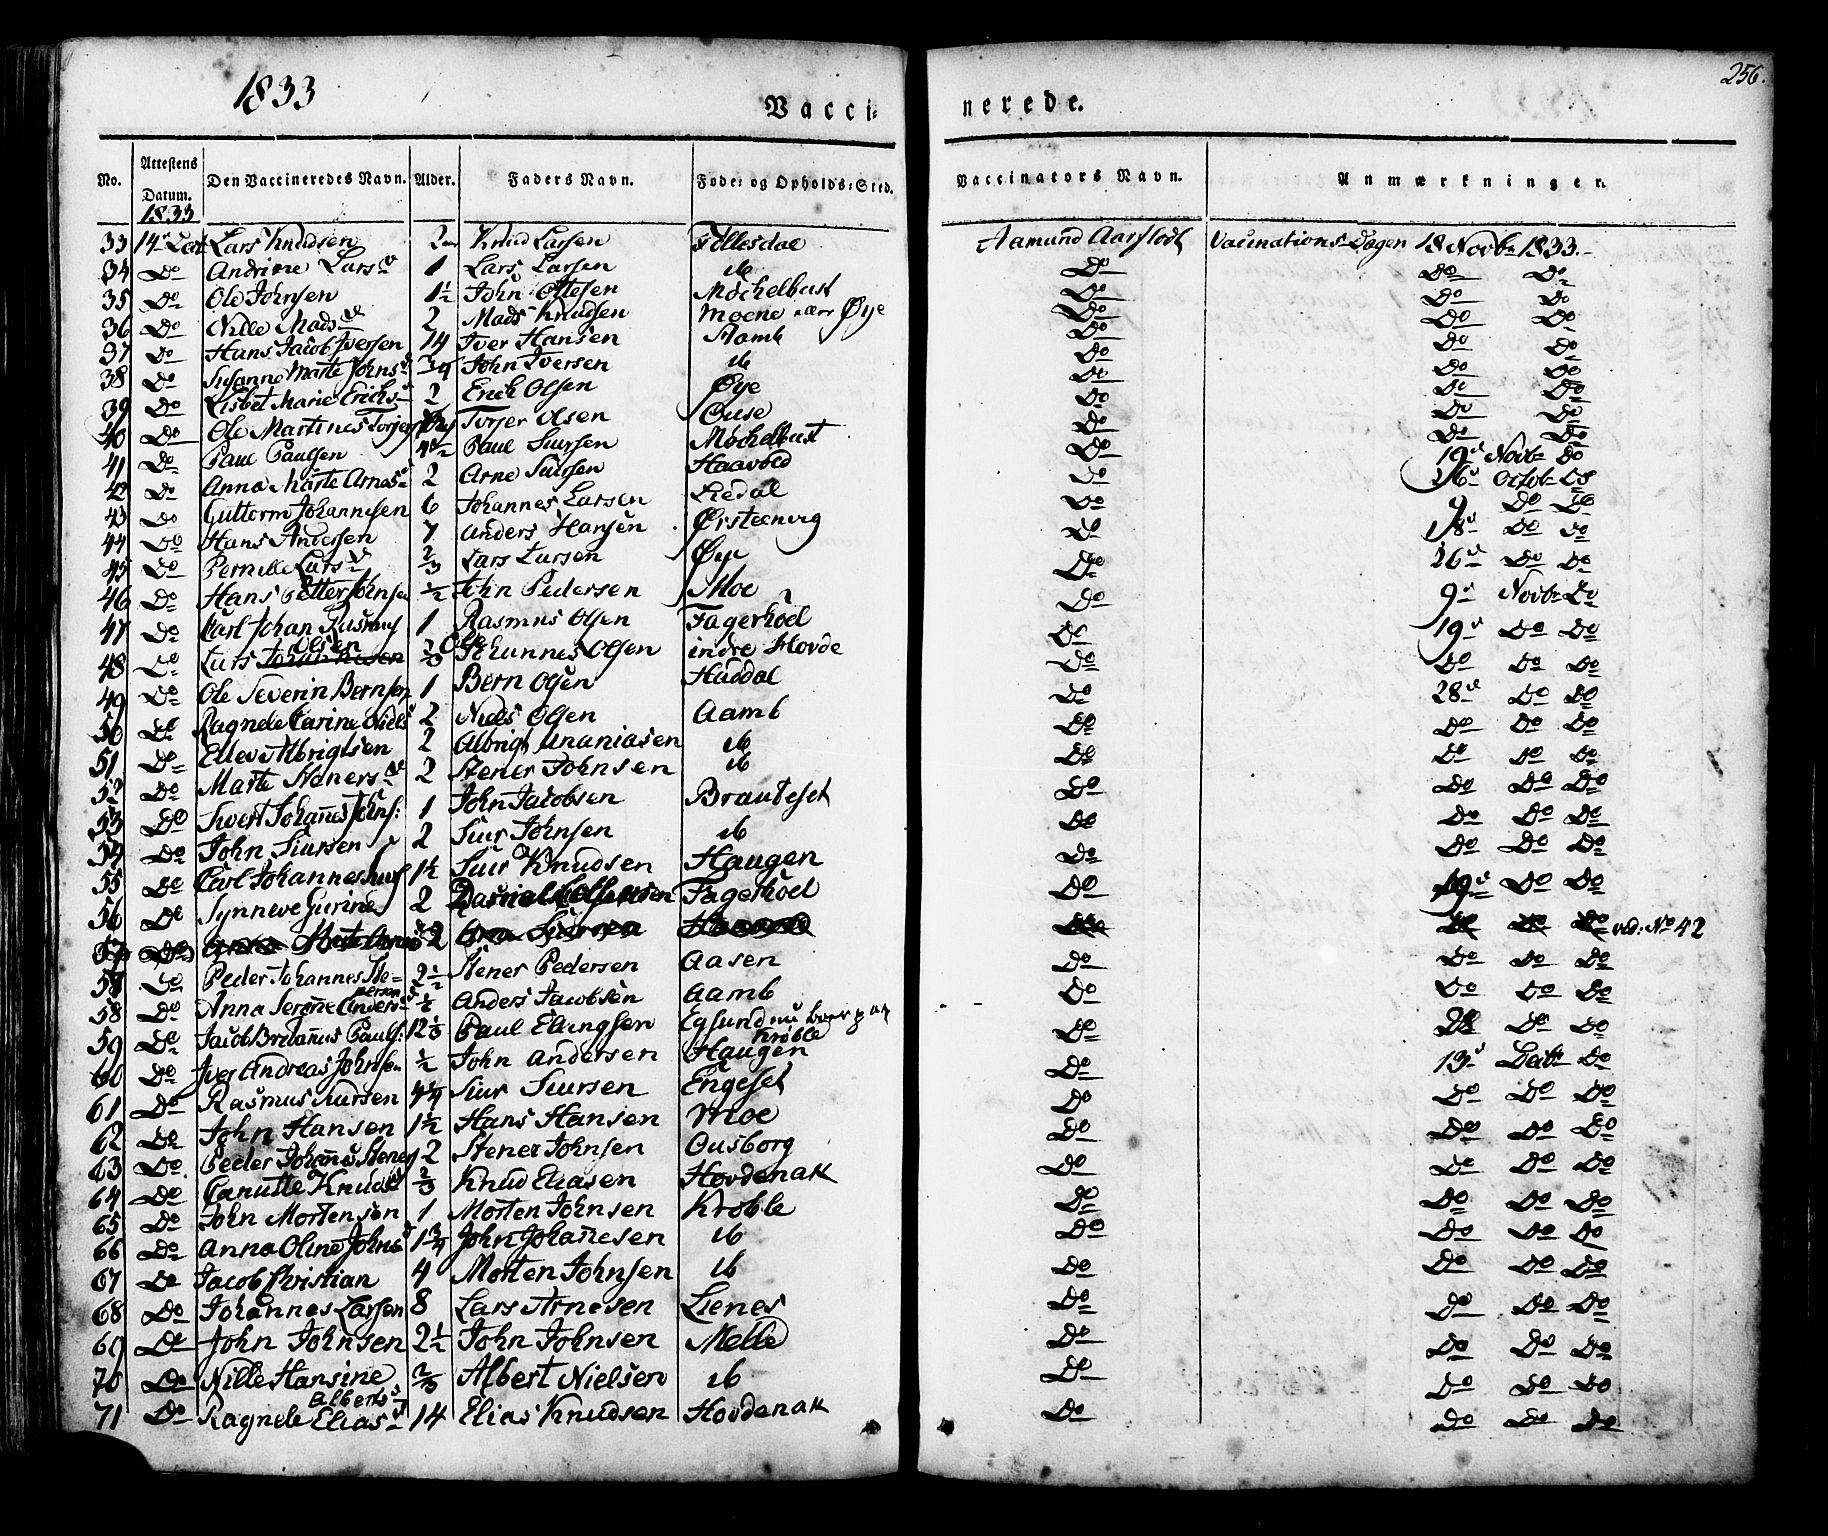 1833
256.
Vacci⸗ nerede.
No. Attestens Datum. Den Vaccineredes Navn. Alder. Faders Navn. Føde⸗ og Opholds⸗Sted. Vaccinators Navn. Anmærkninger.
1833
33 14 Lars Knudsen 2 Knud Larsen Follesdal Aamund Aarflodt Vaccinations Dagen 18 Novbr 1833.
34 Do Andrine Larsd 1 Lars Larsen ib Do Do Do
35 Do Ole Johnsen 1½ John Ottesen Mochelbust Do Do Do
36 Do Nille Madsd 2 Mads Knudsen Moene Øye Do Do Do
37 Do Hans Jacob Iversen 14 Iver Hansen Aamb Do Do Do
38 Do Susanne Marte Johnsd 3/4 John Iversen ib Do Do Do
39 Do Lisbet Marie Ericksd 2 Erick Olsen Øye Do Do Do
40 Do Ole Martines Torjers Torjer Olsen Ouse Do Do Do
41 Do Paul Paulsen 4½ Paul Siursen Mochelbust Do Do Do
42 Do Anna Marte Arnesd 2 Arne Siursen Haavoed Do 19d Novbr Do
43 Do Guttorm Johannesen 6 Johannes Larsen Liedal Do 26d Octob Do
44 Do Hans Andersen 7 Anders Hansen Ørsteenvig Do 9 Do Do
45 Do Pernille Larsd 2/3 Lars Larsen Øye Do 18d Do Do
46 Do Hans Petter Johnsen ½ John Pedersen Moe Do 26d Do Do
47 Do Carl Johan Rasmus 1 Rasmus Olsen Fagerhoel Do 9d Novbr Do
48 Do Lars Olsen 2/3 Johannes Olsen indre Hovde Do 19d Do Do
49 Do Ole Severin Bernsen 1 Bern Olsen Husdal Do Do Do Do
50 Do Ragnele Carine Nielsd 2 Niels Olsen Aamb Do 28d Do Do
51 Do Ellev Albrigtsen 2 Albrigt Ananiasen ib Do Do Do Do
52 Do Marte Stenersd 2 Stener Johnsen ib Do Do Do Do
53 Do Sivert Johanes Johns: 1 John Jacobsen Brauteset Do Do Do Do
54 Do John Siursen 2 Siur Johnsen ib Do Do Do Do
55 Do Carl Johannes Siurs 1½ Siur Knudsen Haugen Do Do Do Do
56 Do Synneve Gurine 2 Daniel Fagerhoel Do 19d Do Do
57 Do Anna Marte Arnesd 2 Arne Siursen Haavoed Do Do Do Do vid: No 42
58 Do Peder Johannes Ste=nersen 2½ Stener Pedersen Aasen Do Do Do Do
58 Do Anna Serine Andersd ½ Anders Jacobsen Aamb Do Do Do Do
59 Do Jacob Pauls: 12 Paul Ellingsen Egsund nu boer paa Krøble Do 28 Do Do
60 Do Iver Andreas Johnsen ½ John Andersen Haugen Do 13d Decbr Do
61 Do Rasmus Siursen 4¼ Siur Siursen Engeset Do Do Do Do
62 Do John Hansen 1½ Hans Hansen Moe Do Do Do Do
63 Do Peder Johanes Steners 2 Stener Johnsen Ousborg Do Do Do Do
64 Do Canutte Knudsd 2/3 Knud Eliasen Hovdenak Do Do Do Do
65 Do John Mortensen 1 Morten Johnsen Krøble Do Do Do Do
66 Do Anna Oline Johnsd 1¾ John Johanesen ib Do Do Do Do
67 Do Jacob Christian 4 Morten Johnsen ib Do Do Do Do
68 Do Johannes Larsen 8 Lars Arnesen Lienes Do Do Do Do
69 Do John Johnsen 2½ John Johnsen Melle Do Do Do Do
70 Do Nille Hansine Albertsd 2/3 Albert Nielsen ib Do Do Do Do
71 Do Ragnele Eliasd 14 Elias Knudsen Hovdenak Do Do Do Do